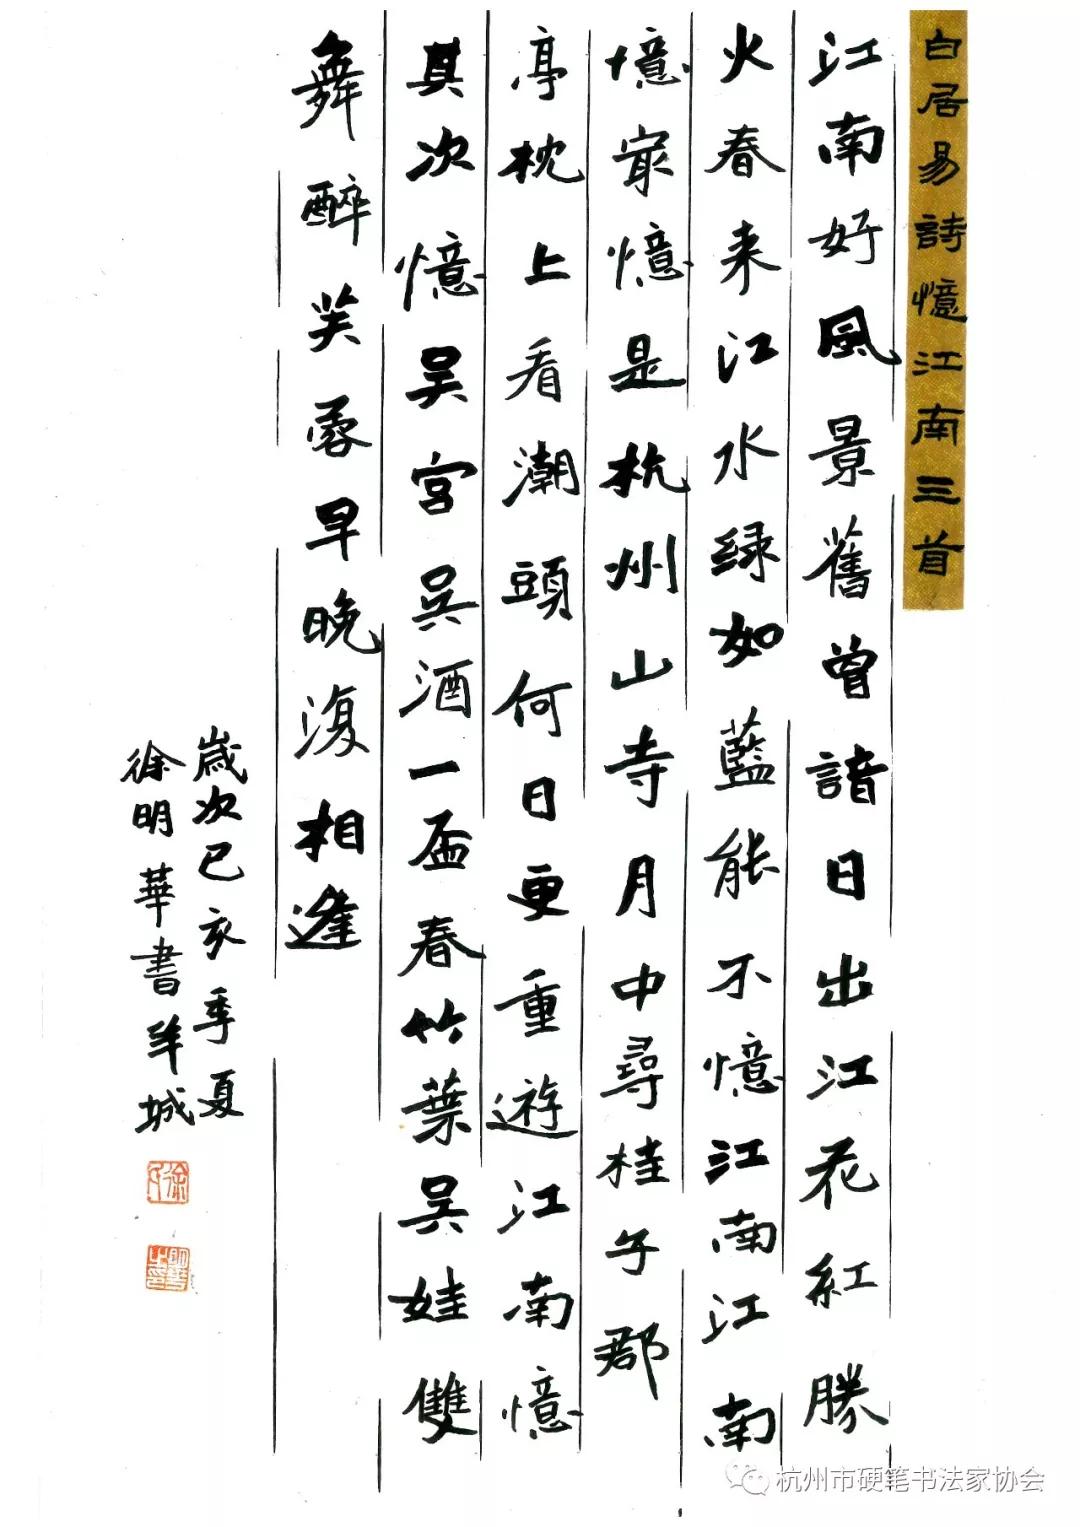 白居易詩憶江南三首
江南好風景舊曾諳日出江花紅勝
火春来江水绿如藍能不憶江南江南
憶㝡憶是杭州山寺月中尋桂子郡
亭枕上看潮頭何日更重遊江南憶
其次憶吴宫吴酒一盃春竹葉吴娃雙
舞醉芙蓉早晚復相逢
歲次己亥季夏
徐明華書羊城
杭州市硬笔书法家协会